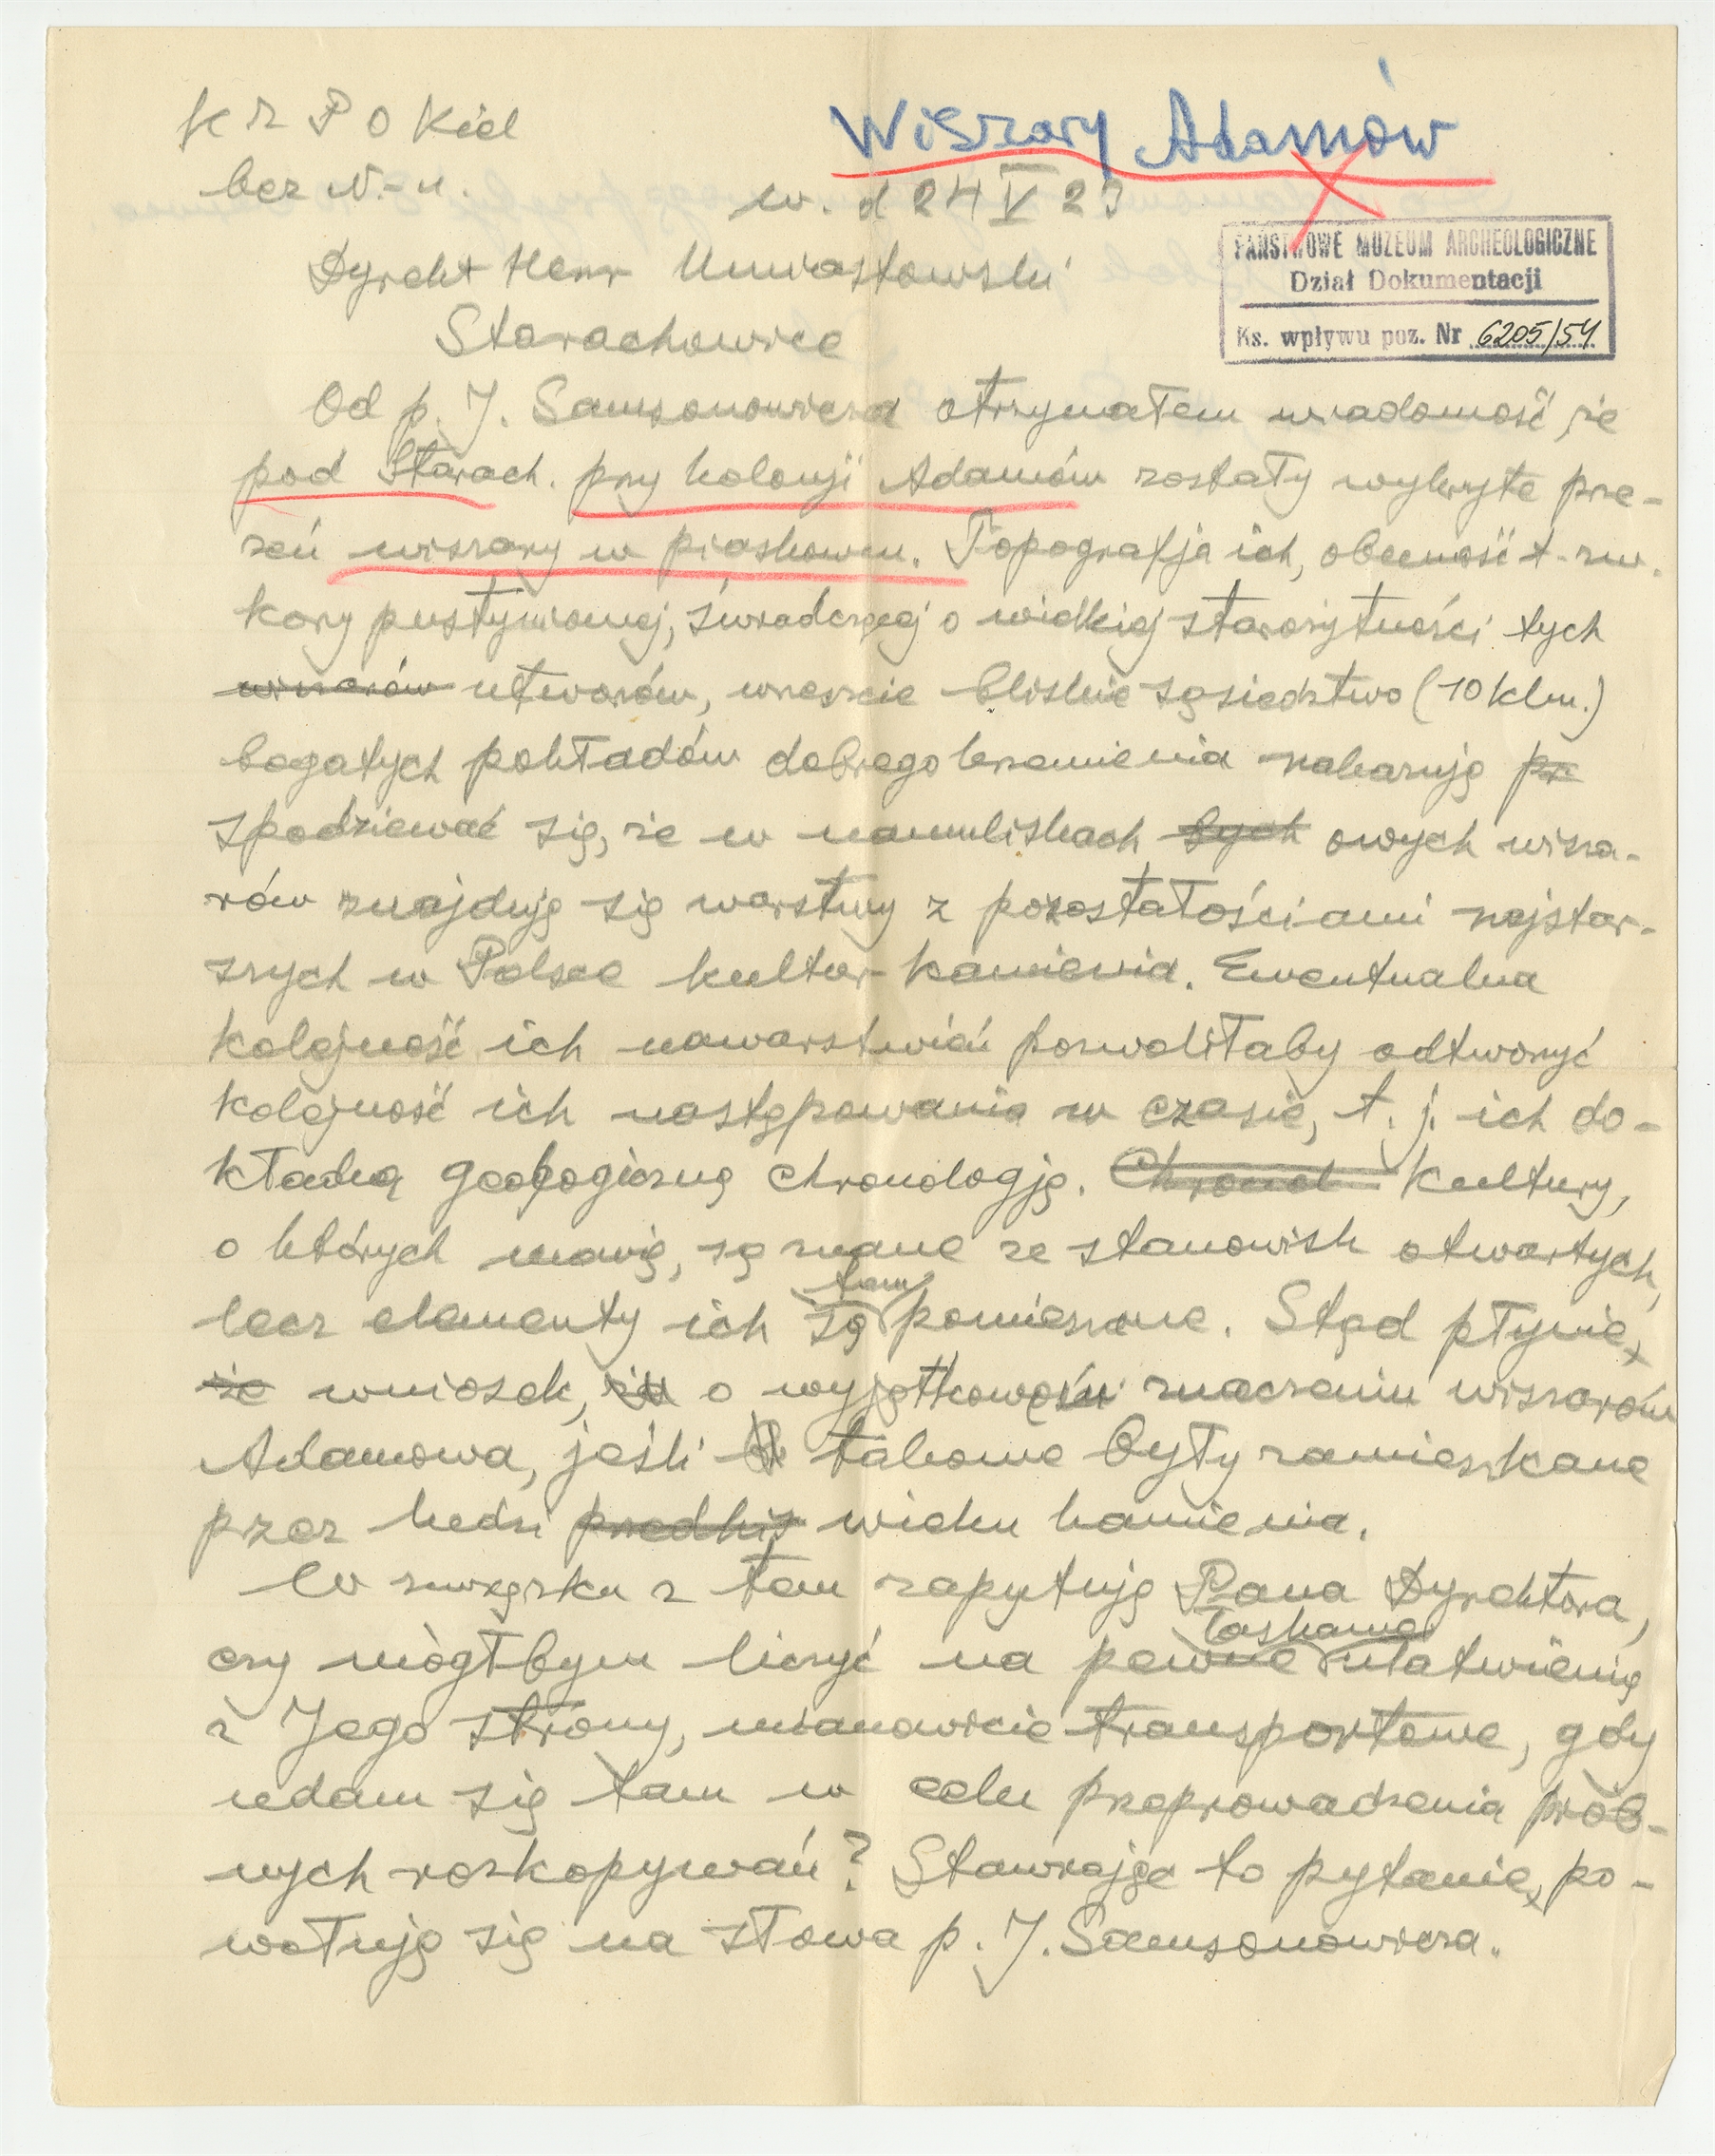 K Z P O Kiel
Wiszary Adamów
bez N.-u.
w. d 24 V 23
PAŃSTWOWE MUZEUM ARCHEOLOGICZNE
Dział Dokumentacji
Ks. wpływu poz. Nr 6205/54
Dyrekt Henr Umiastowski
Starachowice
Od p. J. Samsonowicza otrzymałem wiadomość, że
pod Starach. przy kolonji Adamów zostały wykryte prze-
zeń wiszary w piaskowcu. Topografja ich, obecność t. zw.
kory pustyniowej, świadczącej o wielkiej starożytności tych
wiszarów utworów, wreszcie bliskie sąsiedztwo (10 klm.)
bogatych pokładów dobrego krzemienia nakazują pr
spodziewać się, że w namuliskach tych owych wisza-
rów znajdują się warstwy z pozostałościami najstar-
szych w Polsce kultur kamienia. Ewentualna
kolejność ich nawarstwień pozwoliłaby odtworzyć
kolejność ich następowania w czasie, t. j. ich do-
kładną geologiczną chronologję. Chronol Kultury,
o których mówię, są znane ze stanowisk otwartych,
lecz elementy ich są tam pomieszane. Stąd płynie,
że wniosek, o wyjątkowem znaczeniu wiszarów
Adamowa, jeśli takowe były zamieszkane
przez ludzi przedhis wieku kamienia.
W związku z tem zapytuję Pana Dyrektora,
czy mógłbym liczyć na pewne łaskawe ułatwienia
z Jego strony, mianowicie transportowe, gdy
udam się tam w celu przeprowadzenia prób-
nych rozkopywań? Stawiając to pytanie, po-
wołuję się na słowa p. J. Samsonowicza.